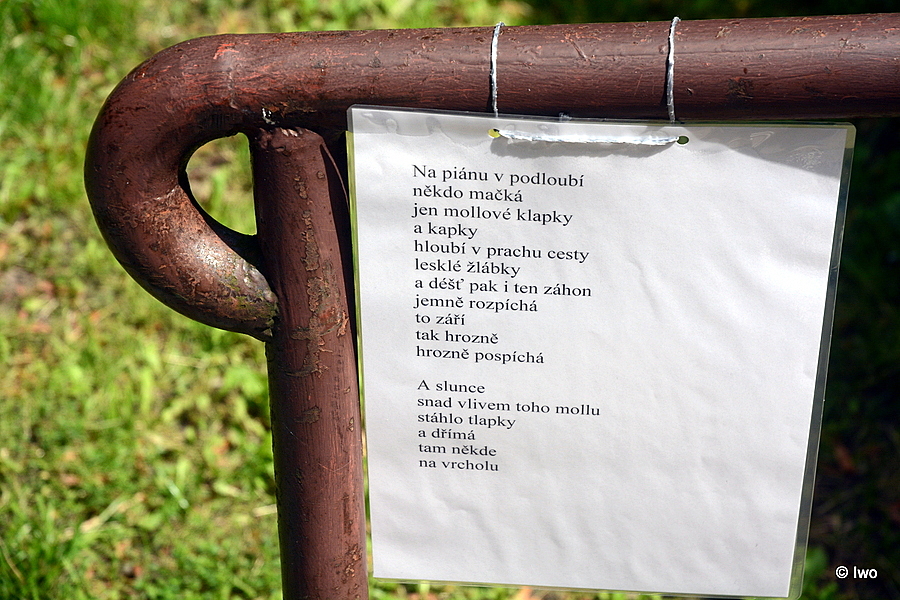 Na piánu v podloubí
někdo mačká
jen mollové klapky
a kapky
hloubí v prachu cesty
lesklé žlábky
a déšť pak i ten záhon
jemně rozpíchá
to září
tak hrozně
hrozně pospíchá

A slunce
snad vlivem toho mollu
stáhlo tlapky
a dřímá
tam někde
na vrcholu

© Iwo